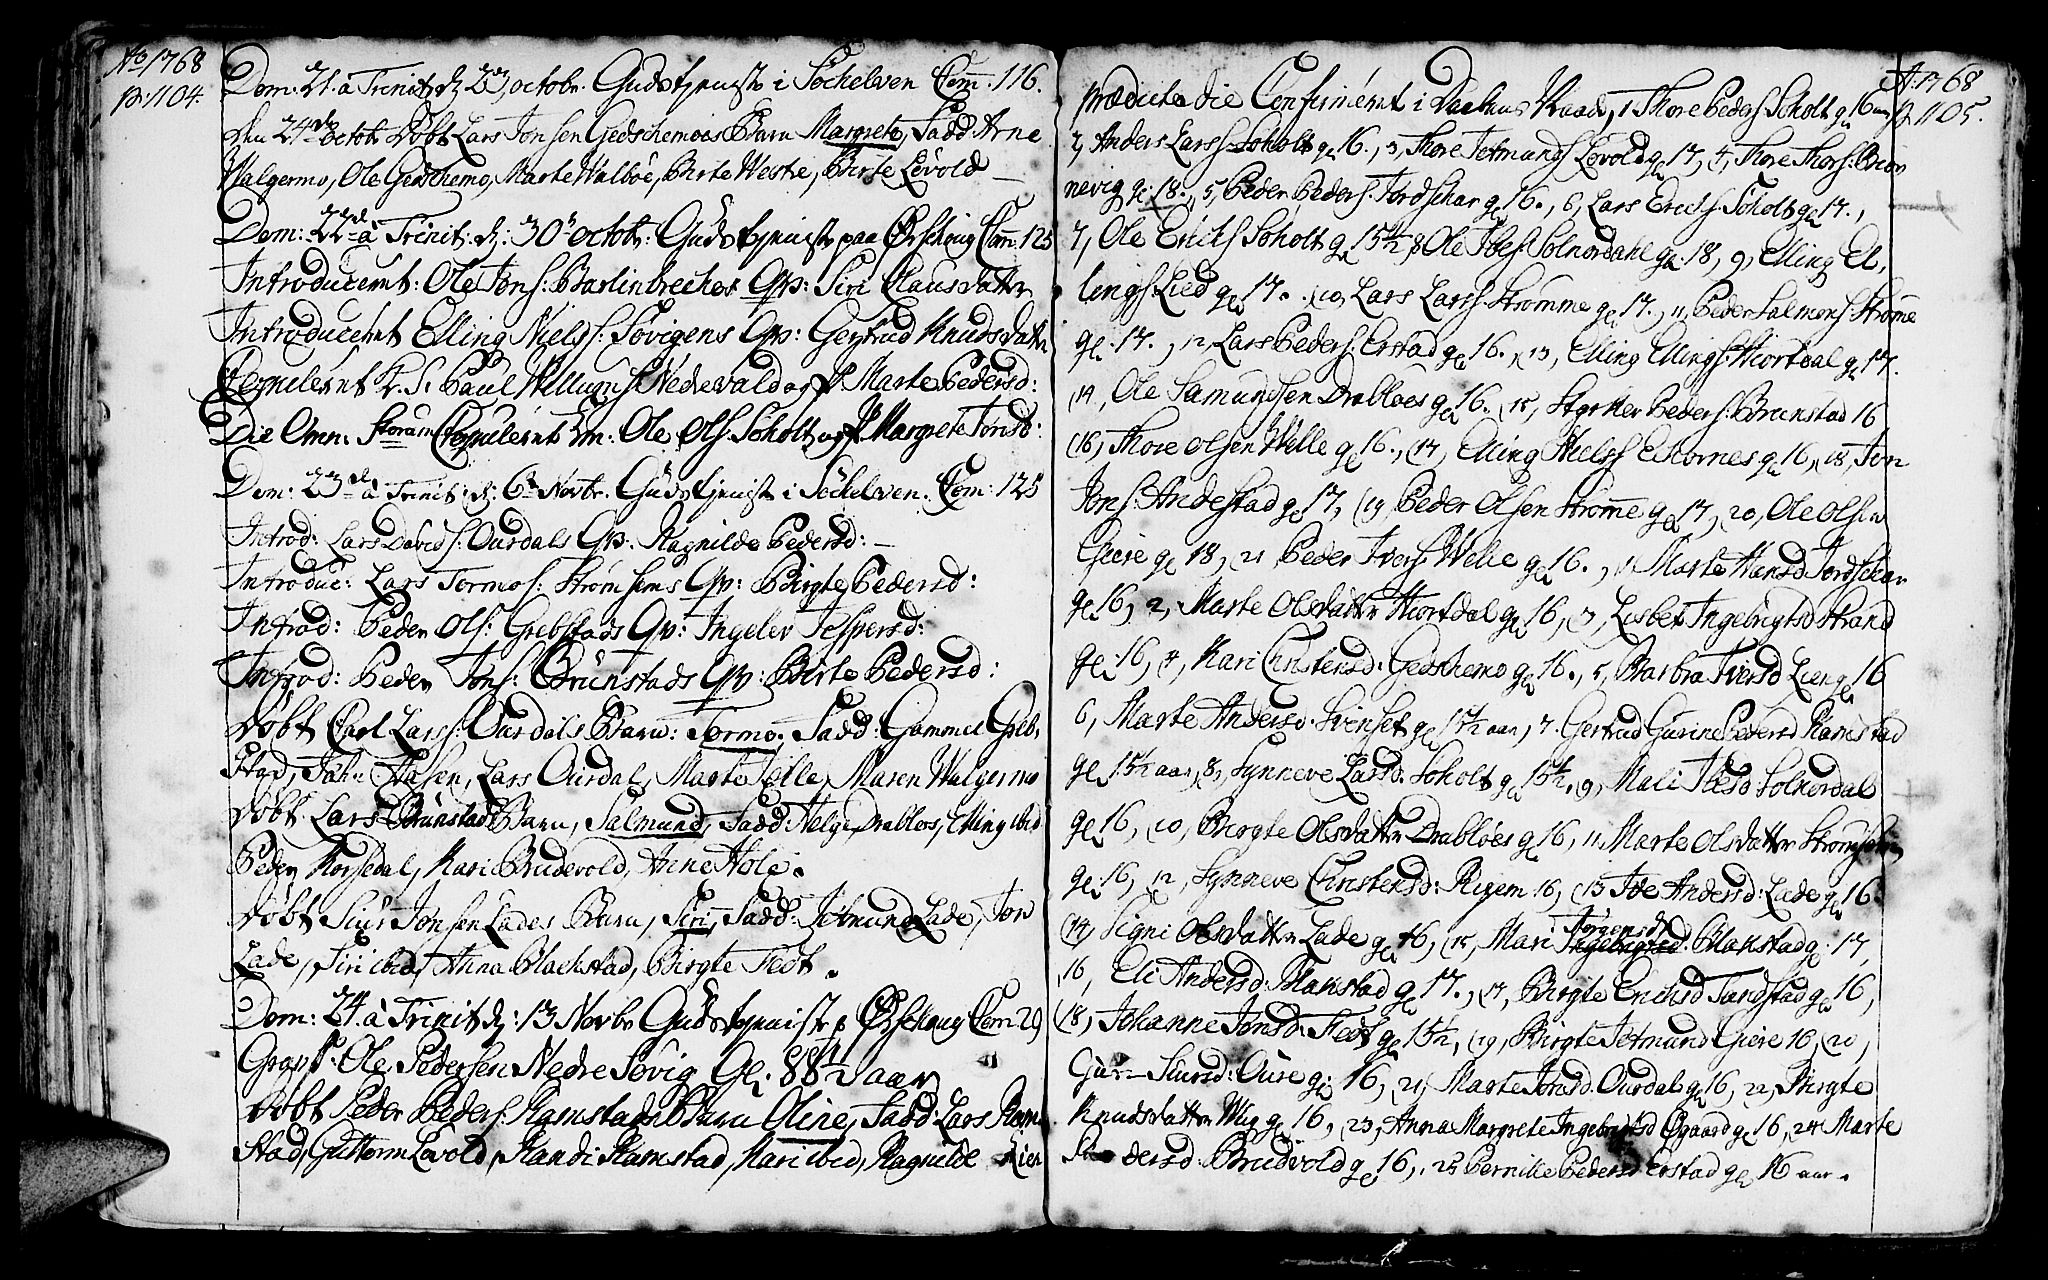 Ao 1768
p. 1104.
Dom: 21. à Trinit: d: 23, octobr. Gudstjenist i Søchelven Com. 116.
den 24de octob: Døbt Lars Jonsen Gedschemoes Barn Margrete, Fadd Arne
Walgermo, Ole Gedschemo, Marte Walbøe, Birte Westre, Birte Løvold
Dom: 22de à Trinit: d: 30te octob: Gudstjenist paa Ørschoug Com: 125
Introducerit: Ole Jons: Barlinbreches Qv: Siri Clausdatter
Introducerit Elling Niels: Søvigens Qv: Gertrud Knudsdattr
Copulerit K. S. Paul Nedrevald og P. Marte Pedersd:
Die Omn: Storum Copulerit Em: Ole Ols: Soholt og P. Margrete Jonsd:
Dom: 23de à Trinit: d: 6te Novbr. Gudstjenist i Søchelven. Com: 125
Introd: Lars Davids: Ourdals Qv. Ragnilde Pedersd:
Introduc: Lars Tormos: Strømhems Qv: Birgte Pedersd:
Introd: Peder Ols: Grebstads Qv: Ingelev Jespersd:
Introd: Peder Jons: Brunstads Qv: Birte Pedersd:
Døbt Carl Larss: Ourdals Barn: Tormo. Fadd: Gammel Greb,
stad, John Aasen, Lars Ourdal, Marte Velle, Maren Walgermo
Døbt Lars Brunstads Barn, Salmund, Fadd Helge Drabløs, Elling ibid
Peder Korsedal, Kari Brudevold, Anne Hole.
Døbt Siur Jonsen Lades Barn, Siri, Fadd: Jetmund Lade, Jon
Lade, Siri ibid, Anna Blachstad, Birgte Fedt.
Dom: 24. à Trinit d: 13 Novbr Gudstjenist p Ørschoug Com 29
Grav P. Ole Pedersen Nedre Søvig Gl: 88½ aar
Døbt Peder Peders: Ramstads Barn Oline, Fadd: Lars Ram
stad, Guttorm Løvold, Randi Ramstad, Kari ibid, Ragnilde Lien
A: 1768
p. 1105.
prædicta die Confirmerit i Vachus Raad, 1 Thore Peders: Soholt gl 16 aar
2, Anders Larss: Soholt gl 16., 3, Thore Jetmunds Løvold gl 17, 4, Thore Thors: Biør
nevig gl: 18., 5, Peder Peders: Jordschar gl 16., 6, Lars Erichs: Soholt gl 17.,
7, Ole Erichs Soholt gl 15½, 8 Ole Ibes: Solnordahl gl: 18, 9, Elling El,
lings Lied gl 17. (10, Lars Larss: Strømme gl 17., 11, Peder Salmons: Strøme
gl: 17., 12, Lars Peders: Erstad gl 16., (13, Elling Ellings: Hiortdal gl 17.
(14, Ole Samundsen Drabløes gl 16. (15, Styrker Peders: Brunstad 16
(16, Thore Olsen Welle gl 16., (17, Elling Niels: Echornes gl 16, (18, Jon
Jons: Andestad gl 17, (19, Peder Olsen Strømme gl 17, 20, Ole Olsen
Giere gl 18, 21 Peder Ivers: Welle gl 16., 1, Marte Hansd Jordschar
gl 16, 2, Marte Olsdatter Hiortdal gl 16, (3, Lisbet Ingebrigtsd Strand
gl: 16, (4, Kari Christensd: Gedschemo gl 16., 5, Barbra Iversd Lien gl 16
6, Marte Andersd: Svinset gl 15½ aar, 7. Gertrud Gurine Pedersd Ramstad
gl 15½ aar, 8, Synneve Larsd: Soholt gl 15½, (9, Mali Ibesd Solnordal
gl 16, (10, Birgte Olsdatter Drabløes gl 16, 11 Marte Olsdatter Strømhem
gl: 16, 12, Synneve Christensd: Rusem 16, (13 Ide Andersd: Lade gl 16.
(14, Signi Olsdatter Lade gl 16, (15, Mari Ingebrigtsd: Blakstad gl. 17,
Jørgensd
16, Eli Andersd: Blakstad gl 17., 17, Birgte Erichsd Tandstad gl 16,
(18, Johanne Jonsd: Fedt gl 15½, (19, Birgte Jetmund Giere 16, (20,
Gu Siursd: Oure gl: 16, 21, Marte Jonsd: Ourdal gl 16, 22, Birgte
Knudsdatter Wiig gl 16, (23, Anna Margrete Ingebrigtsd Øgaard gl 16, 24 Marte
Andersd: Brudvold gl 16, 25 Pernille Pedersd Erstad gl 16 aar.